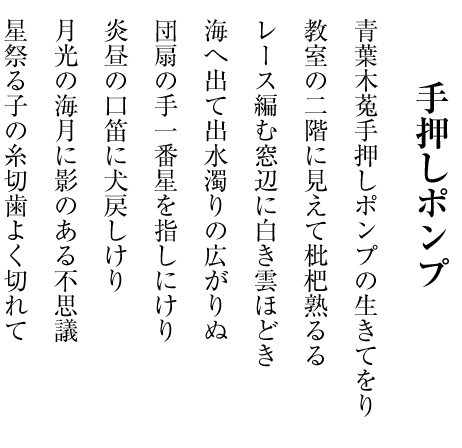 手押しポンプ
青葉木菟手押しポンプの生きてをり
教室の二階に見えて枇杷熟るる
レース編む窓辺に白き雲ほどき
海へ出て出水濁りの広がりぬ
団扇の手一番星を指しにけり
炎昼の口笛に犬戻しけり
月光の海月に影のある不思議
星祭る子の糸切歯よく切れて